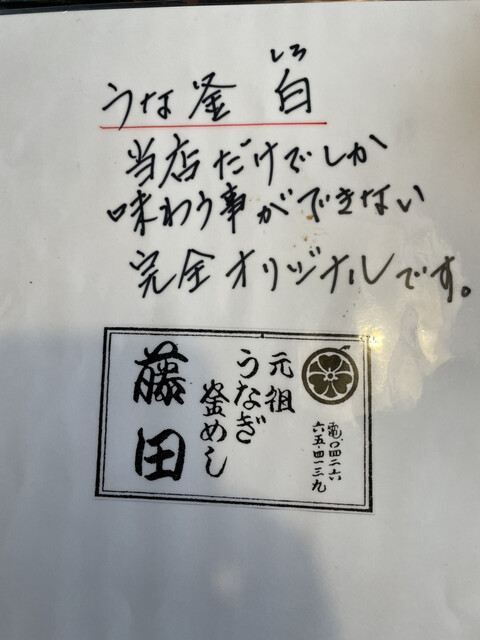 しろ
うな釜 白
当店だけでしか
味わう事ができない
完全オリジナルです。
電.〇四二六
六五.四一三九
元祖
うなぎ
釜めし
藤田